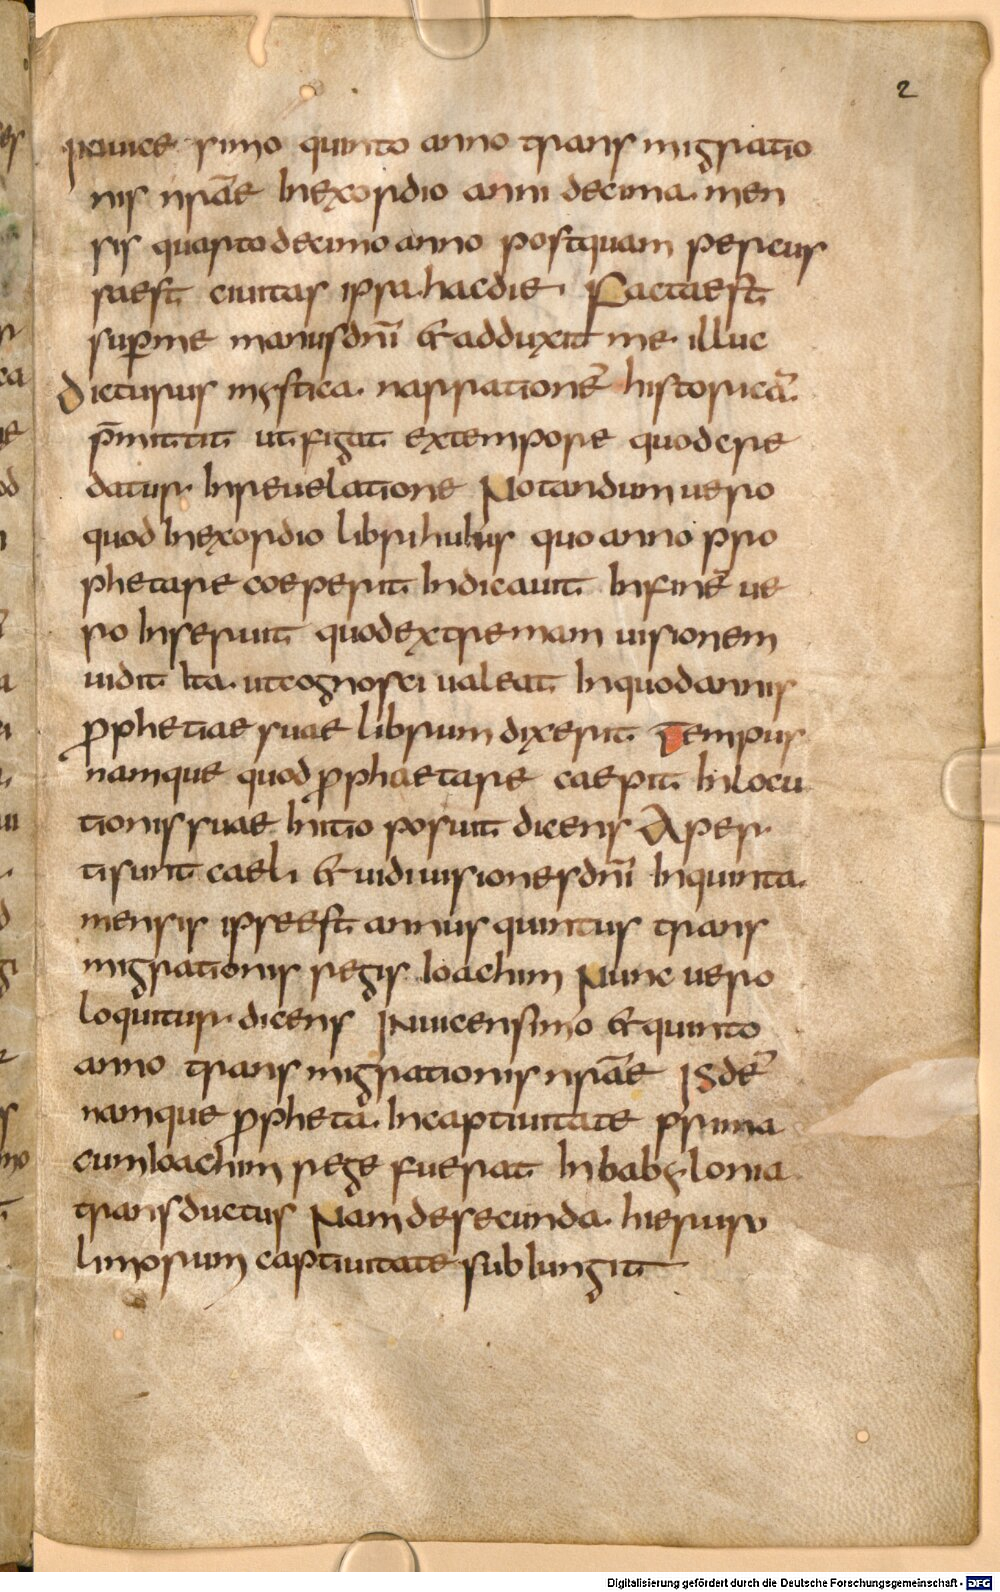 2
Inuice simo quinto anno transmigratio
nis nr̄ae In exordio anni decima men
sis quarto decimo anno postquam percus
sa est ciuitas ipsa hac die Facta est
sup me manus dn̄i & adduxit me illuc
Dicturus mystica narrationē historicā
p̄mittit ut figat ex tempore quod cre
datur In reuelatione Notandum uero
quod In exordio libri huius quo anno pro
phetare coeperit Indicauit In finē ue
ro Inseruit quod extremam uisionem
uidit Ita ut cognosci ualeat In quod annis
p̄phetiae suae librum dixerit Tempus
namque quod p̄phaetare caepit In locu
tionis suae Initio posuit dicens Aper
ti sunt caeli & uidi uisiones dn̄i In quinta
mensis ipse est annus quintus trans
migrationis regis Ioachim Nunc uero
loquitur dicens In uicensimo & quinto
anno transmigrationis nr̄ae Isdē
namque p̄pheta In captiuitate prima
cum Ioachim rege fuerat In babylonia
transductus Nam de secunda hieruso
limorum captiuitate subIungit
Digitalisierung gefördert durch die Deutsche Forschungsgemeinschaft - DFG